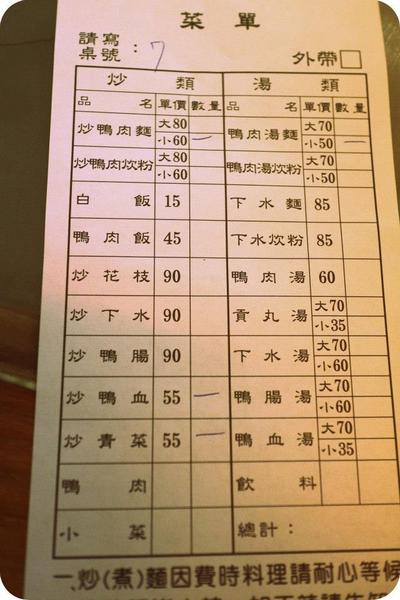 菜單
請寫
桌號：7 外帶□
炒類 湯類
品名 單價 數量 品名 單價 數量
炒鴨肉麵 大80 鴨肉湯麵 大70
小60 一 小50 一
炒鴨肉炊粉 大80 鴨肉湯炊粉 大70
小60 小50
白飯 15 下水麵 85
鴨肉飯 45 下水炊粉 85
炒花枝 90 鴨肉湯 60
炒下水 90 貢丸湯 大70
小35
炒鴨腸 90 下水湯 大70
小60
炒鴨血 55 一 鴨腸湯 大70
小60
炒青菜 55 一 鴨血湯 大70
小35
鴨肉 飲料
小菜 總計：
一.炒(煮)麵因費時料理請耐心等候